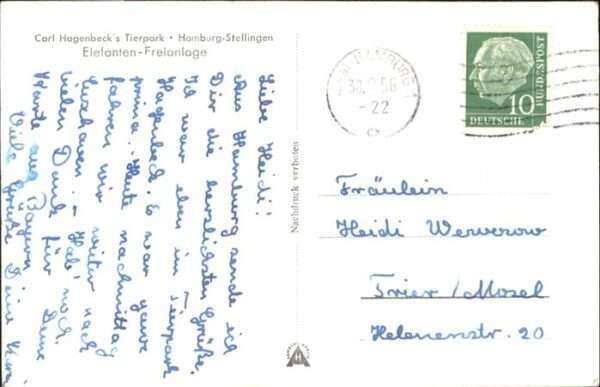 Carl Hagenbeck's Tierpark • Hamburg-Stellingen
Elefanten-Freianlage
Liebe Heidi!
Aus Hamburg sende ich
Dir die herzlichsten Grüße.
Ich war eben im Tierpark
Hagenbeck. Es war ganz
prima. Heute nachmittag
fahren wir weiter nach
Cuxhaven. - Hab' noch
vielen Dank für Deine
Karte aus Bayern
Viele Grüße Deine
Nachdruck verboten
HAMBURG
56
-22
10
DEUTSCHE
BUNDESPOST
Fräulein
Heidi Werverow
Trier/Mosel
Helenenstr. 20